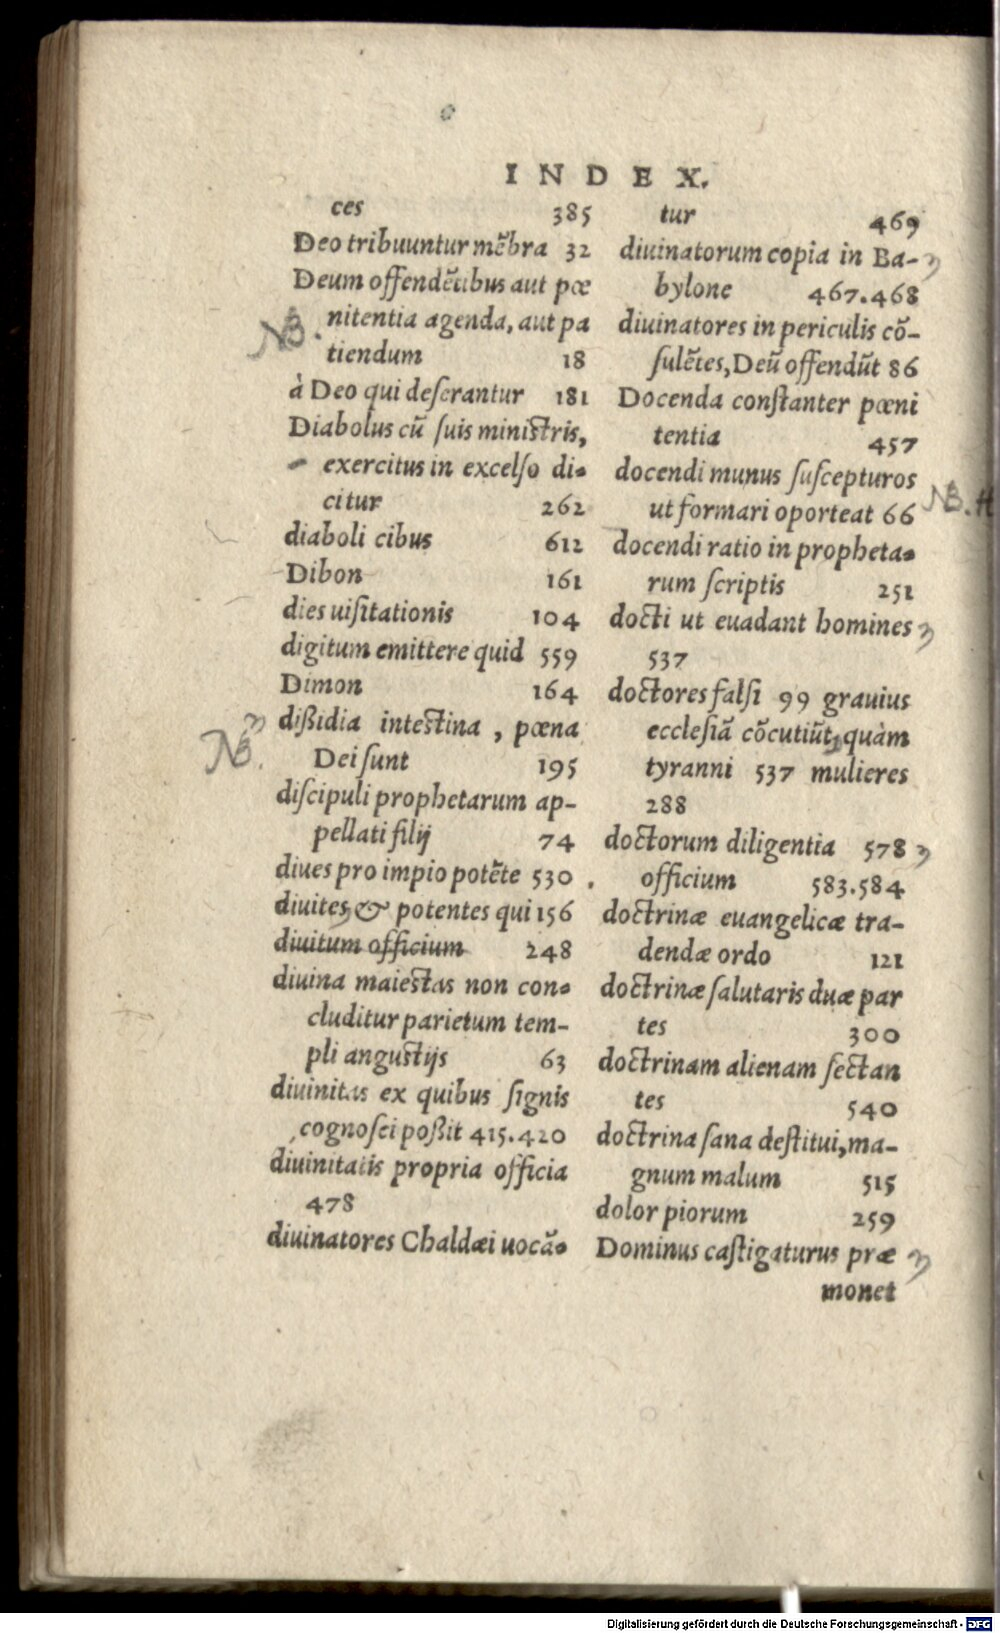 INDEX.
ces 385
Deo tribuuntur mẽbra 32
Deum offendẽtibus aut pœ
nitentia agenda, aut pa
tiendum 18
à Deo qui deserantur 181
Diabolus cũ suis ministris,
exercitus in excelso di-
citur 262
diaboli cibus 612
Dibon 161
dies uisitationis 104
digitum emittere quid 559
Dimon 164
dißidia intestina, pœna
Dei sunt 195
discipuli prophetarum ap-
pellati filij 74
diues pro impio potẽte 530
diuites & potentes qui 156
diuitum officium 248
diuina maiestas non con-
cluditur parietum tem-
pli angustijs 63
diuinitas ex quibus signis
cognosci poßit 415.420
diuinitatis propria officia
478
diuinatores Chaldæi uocã-
tur 469
diuinatorum copia in Ba-
bylone 467.468
diuinatores in periculis cõ-
sulẽtes, Deũ offendũt 86
Docenda constanter pœni
tentia 457
docendi munus suscepturos
ut formari oporteat 66
docendi ratio in propheta-
rum scriptis 251
docti ut euadant homines
537
doctores falsi 99 grauius
ecclesiã cõcutiũt, quàm
tyranni 537 mulieres
288
doctorum diligentia 578
officium 583.584
doctrinæ euangelicæ tra-
dendæ ordo 121
doctrinæ salutaris duæ par
tes 300
doctrinam alienam sectan
tes 540
doctrina sana destitui, ma-
gnum malum 515
dolor piorum 259
Dominus castigaturus præ
monet
NB.
NB.
NB.
Digitalisierung gefördert durch die Deutsche Forschungsgemeinschaft - DFG